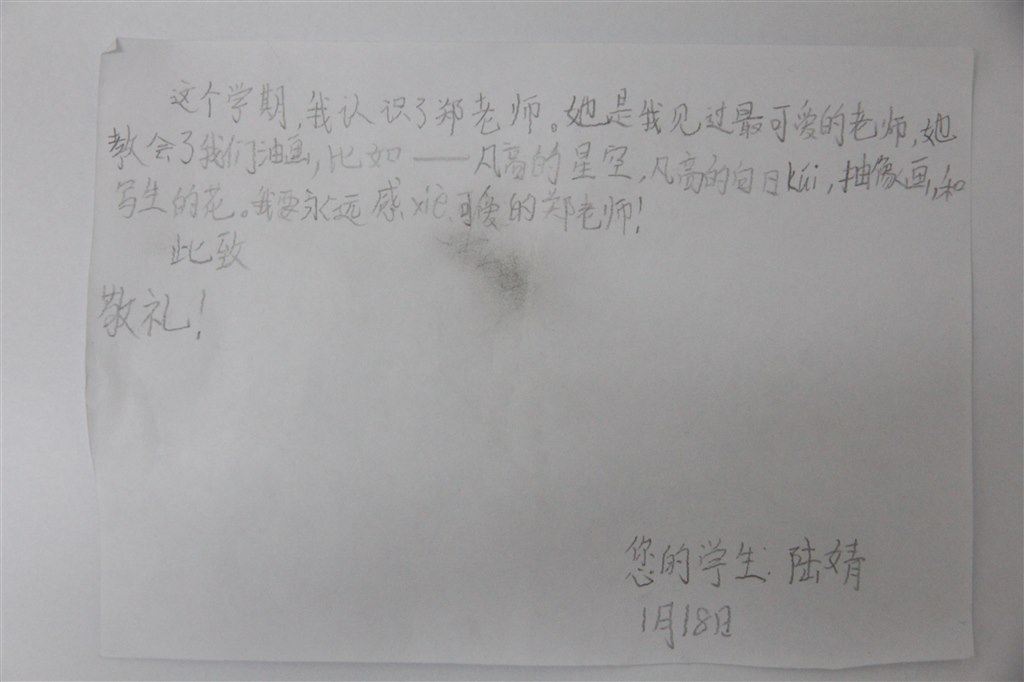 这个学期,我认识了郑老师。她是我见过最可爱的老师,她
教会了我们油画,比如——凡高的星空,凡高的向日kúi,抽像画,和
写生的花。我要永远感xiè可爱的郑老师!
此致
敬礼!
您的学生:陆婧
1月18日